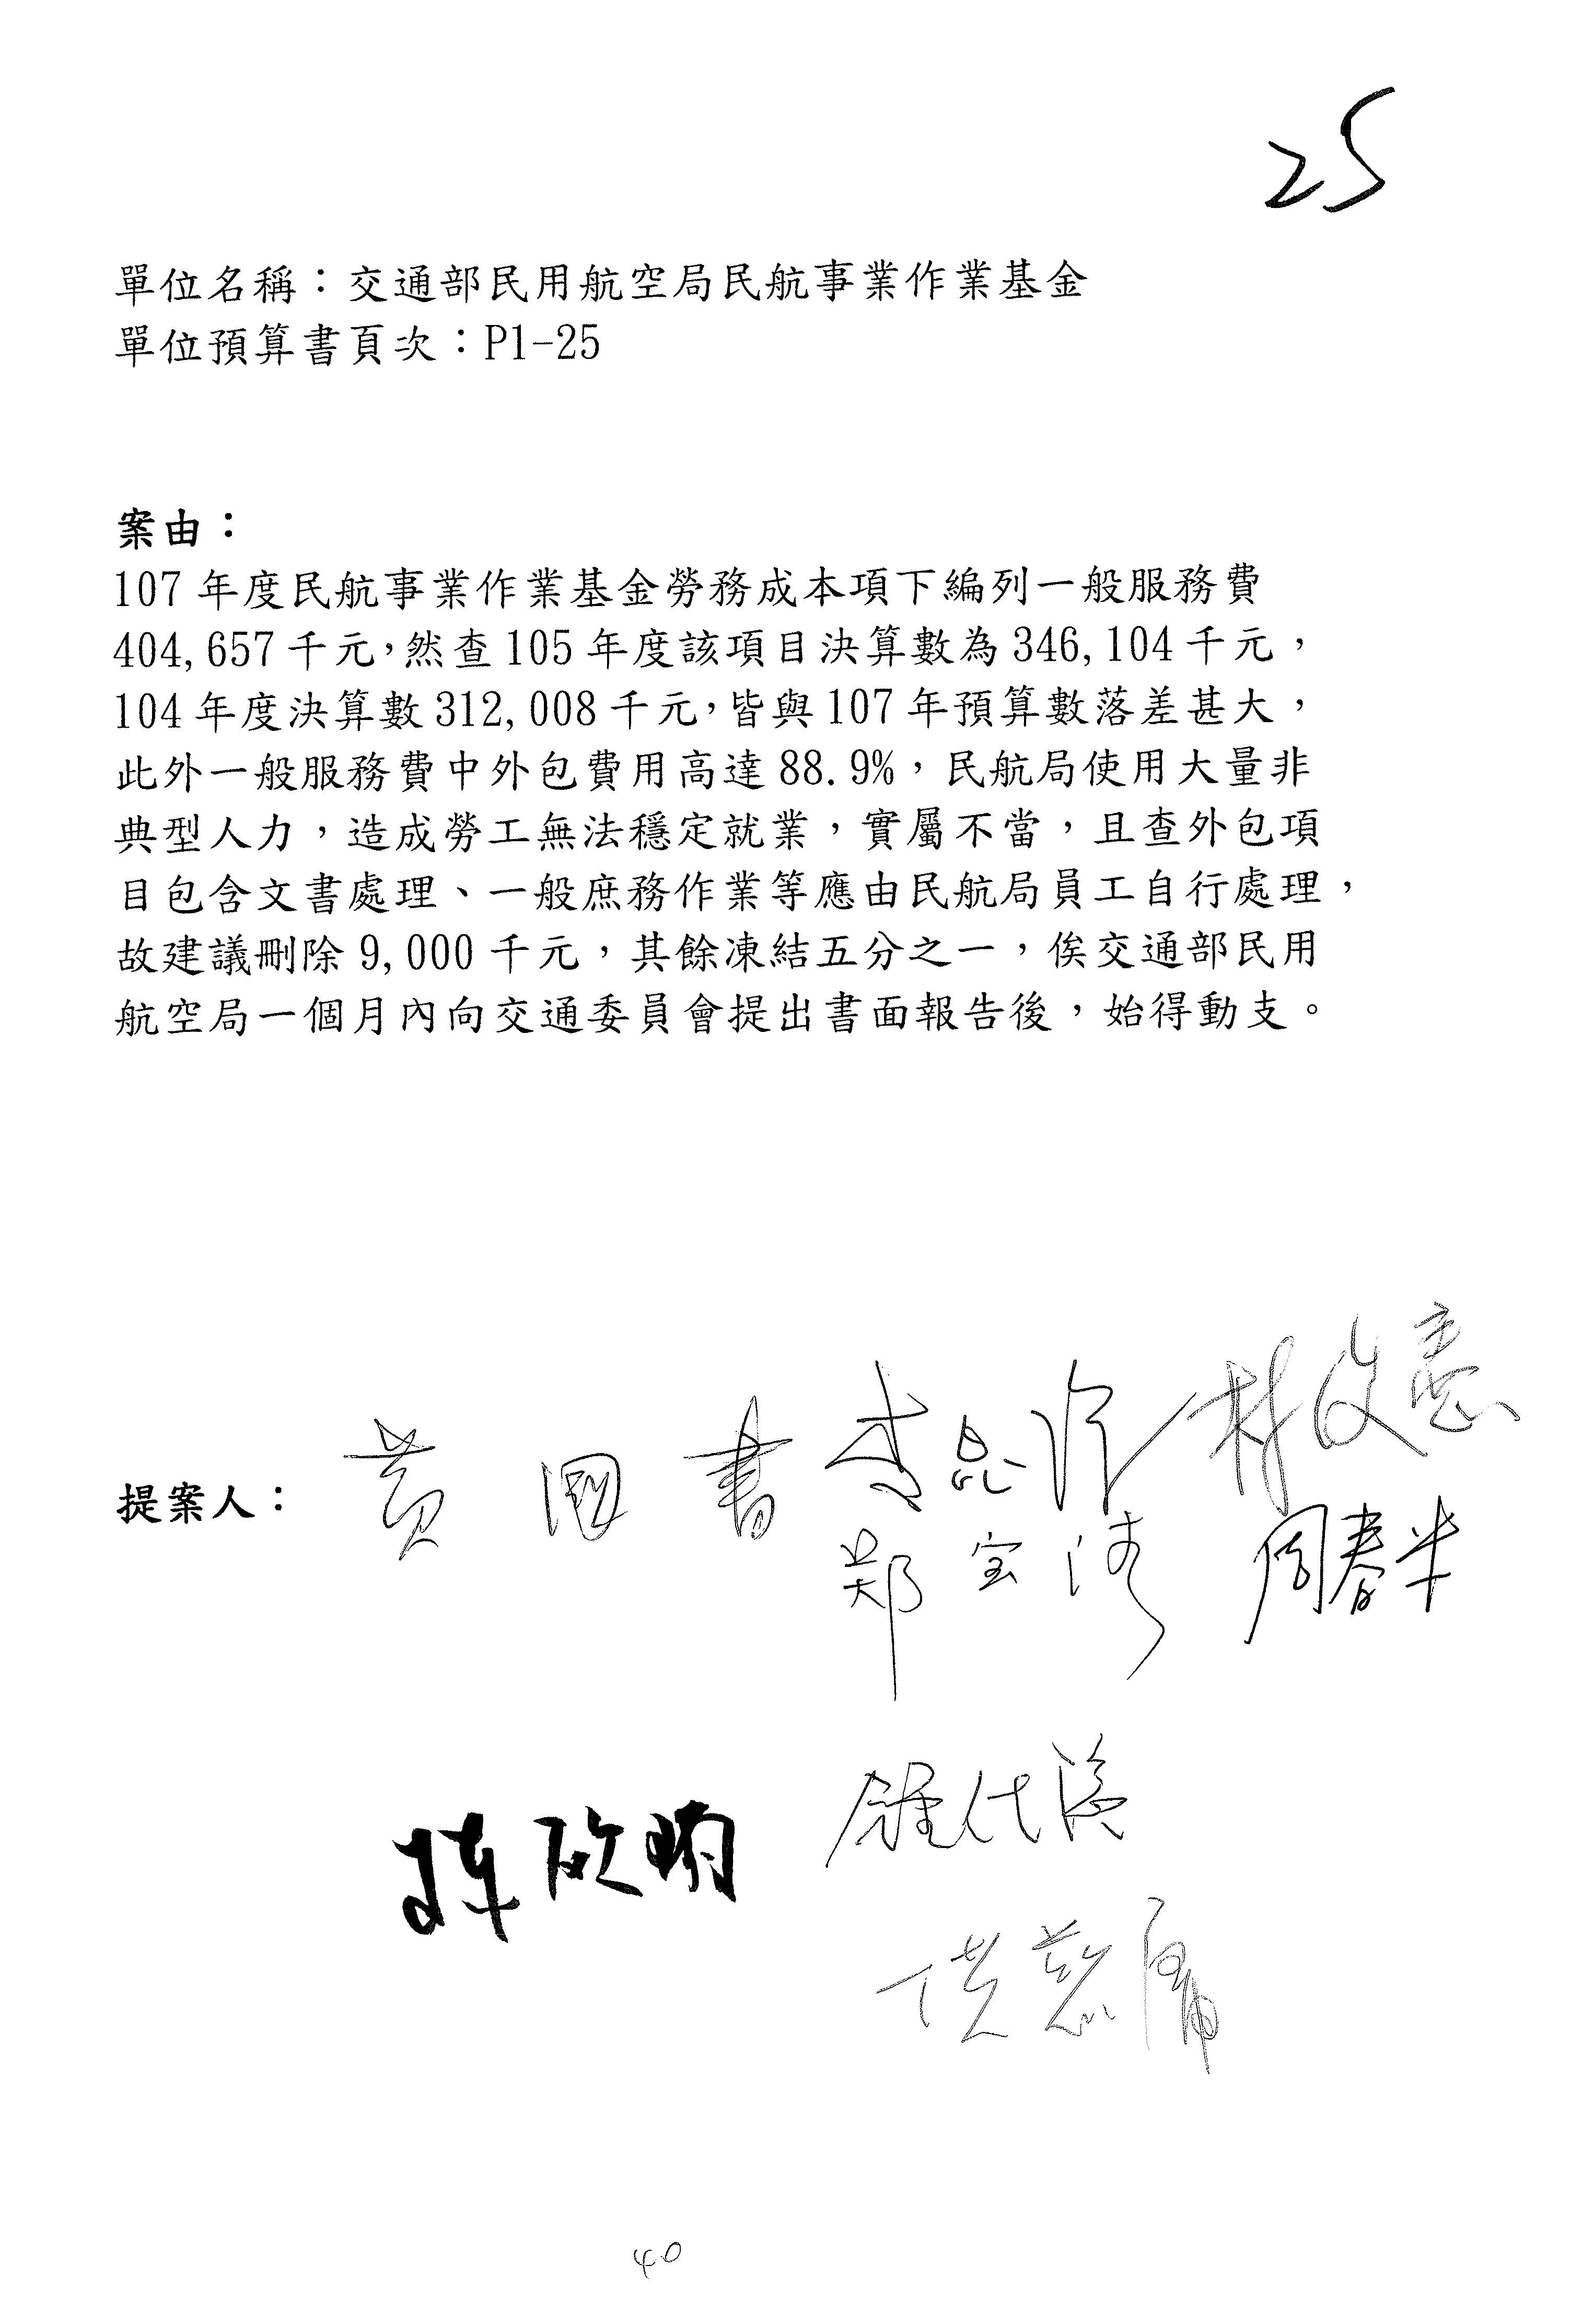 25
單位名稱：交通部民用航空局民航事業作業基金
單位預算書頁次：P1-25
案由：
107 年度民航事業作業基金勞務成本項下編列一般服務費
404,657 千元，然查 105 年度該項目決算數為 346,104 千元，
104 年度決算數 312,008 千元，皆與 107 年預算數落差甚大，
此外一般服務費中外包費用高達 88.9%，民航局使用大量非
典型人力，造成勞工無法穩定就業，實屬不當，且查外包項
目包含文書處理、一般庶務作業等應由民航局員工自行處理，
故建議刪除 9,000 千元，其餘凍結五分之一，俟交通部民用
航空局一個月內向交通委員會提出書面報告後，始得動支。
提案人：黃國書 李昆澤 林俊憲
鄭宝清 周春米
鍾佳濱
洪慈庸
40